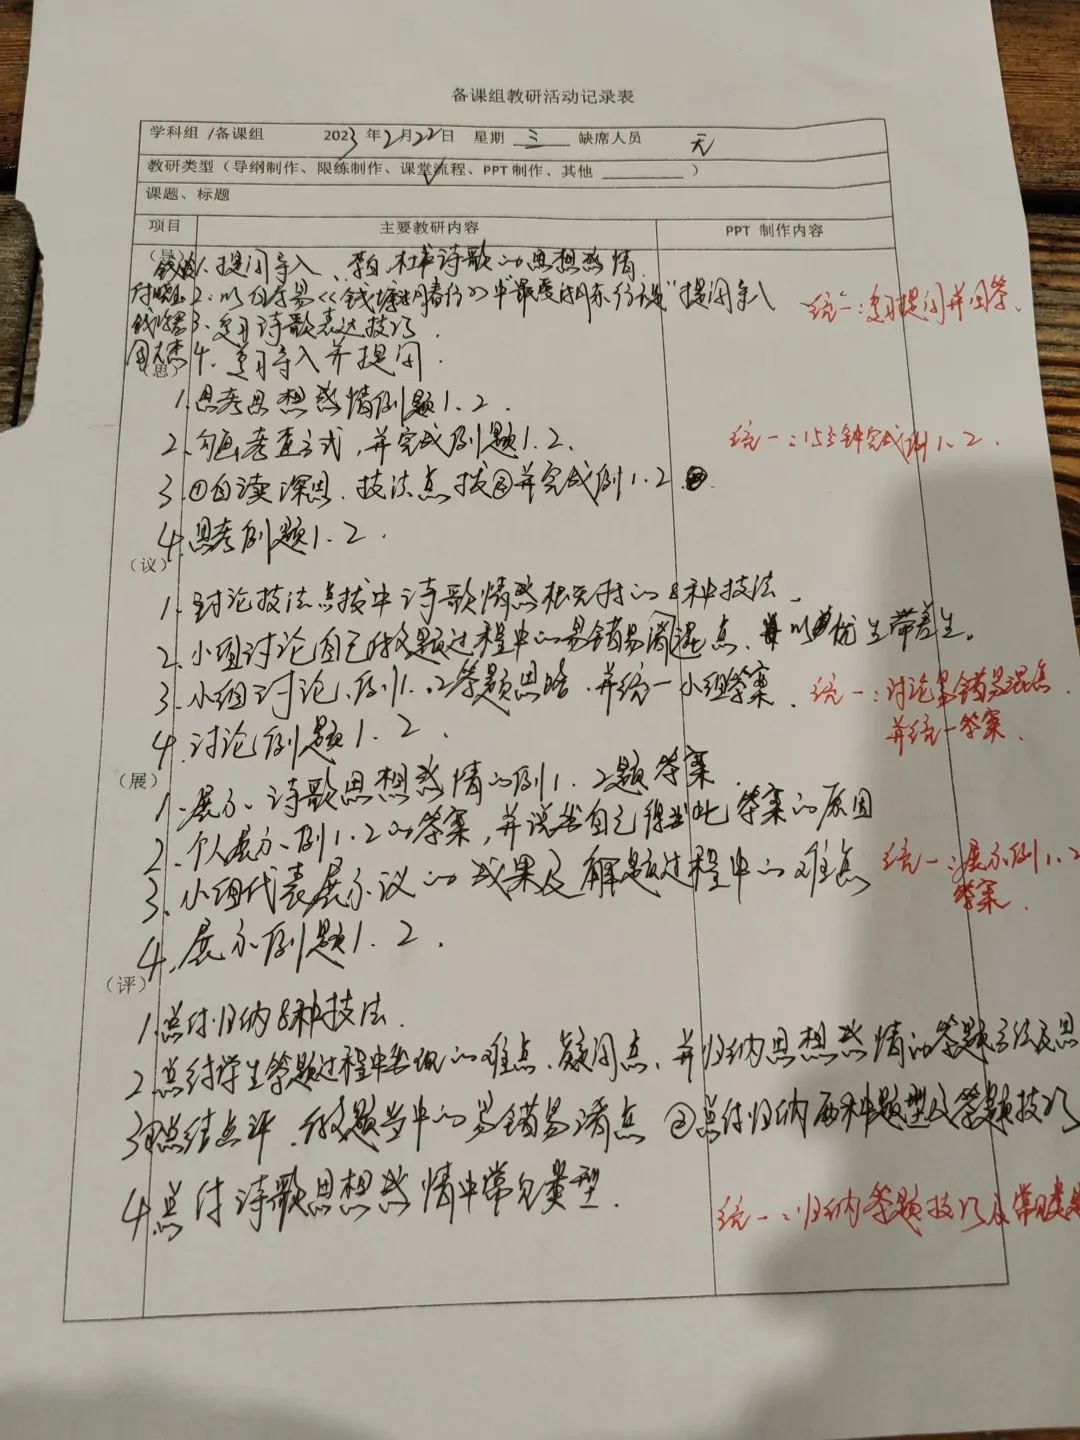 备课组教研活动记录表
学科组 /备课组 2023年2月22日 星期 三 缺席人员 无
教研类型（导纲制作、限练制作、课堂流程、PPT制作、其他 ）
课题、标题
项目 主要教研内容 PPT 制作内容
1. 提问导入、李白、杜甫诗歌的思想感情
2. 以白居易《钱塘湖春行》中"最爱湖东行不足"提问导入
统一：复习提问并回答.
3. 复习诗歌表达技巧.
4. 复习导入并提问.
（思）
1. 思考思想感情例题1.2.
2. 勾画考查方式,并完成例题1.2.
统一：15分钟完成例1.2.
3. ①自读深思、技法点拨②并完成例1.2.
4. 思考例题1.2.
（议）
1. 讨论技法点拨中诗歌情感的8种技法.
2. 小组讨论自己做题过程中的易错易混点、以优生带差生。
3. 小组讨论、例1.2答题思路、并统一小组答案.
统一：讨论易错易混点
并统一答案.
4. 讨论例题1.2.
（展）
1. 展示、诗歌思想感情的例1.2题答案.
2. 个人展示、例1.2的答案,并说出自己得出此答案的原因
3. 小组代表展示议的成果及解题过程中的难点
统一：展示例1.2
答案.
4. 展示例题1.2.
（评）
1. 总结归纳8种技法.
2. 总结学生答题过程中出现的难点、疑问点、并归纳思想感情的答题方法及思
3. ①总结点评、做题当中的易错易混点 ②总结归纳两种题型及答题技巧
4. 总结诗歌思想感情中常见类型.
统一：归纳答题技巧及常见类型